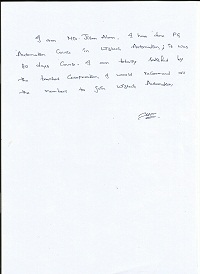 I am MD. Islam Alam. I have done PG
Automation Course in Wipro Automation, it was
80 days Course. I am totally satisfied by
the Practical Cooperation. I would recommend all
the members to join Automation